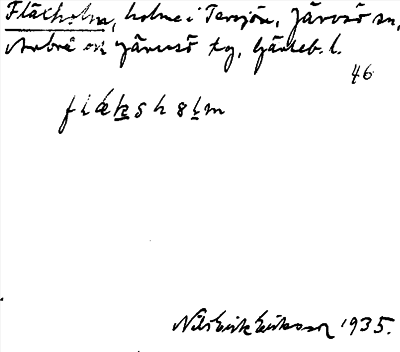 Fläxholme, holme i Tersjön, Järvsö sn,
Arbrå ok Järvsö tg, Gävleb. l.
46
flǽk̲sh8l̲m
Nils Erik Eriksson 1935.